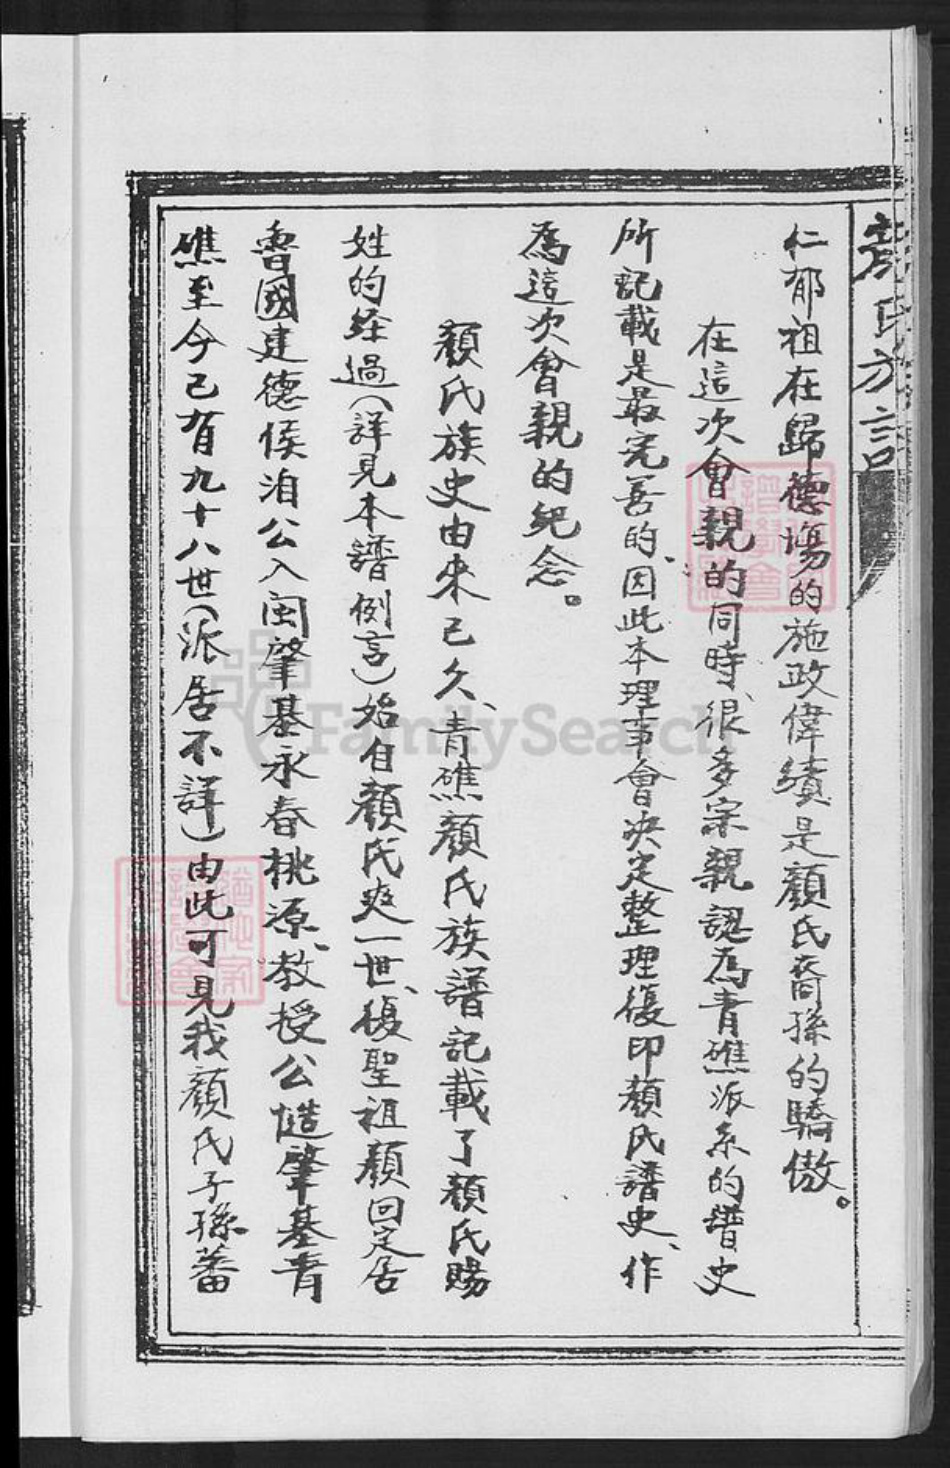 顏氏族譜
仁郁祖在歸德場的施政偉績是顏氏裔孫的驕傲。
在這次會親的同時、很多宗親認為青礁派系的譜史
所記載是最完善的、因此本理事會決定整理復印顏氏譜史、作
為這次會親的紀念。
顏氏族史由來已久、青礁顏氏族譜記載了顏氏賜
姓的经過(詳見本譜例言)始自顏氏爽一世、復聖祖顏回定居
魯國建德侯洎公入闽肇基永春桃源、教授公慥肇基青
礁至今已有九十八世(派居不詳)由此可見我顏氏子孫蕃
FamilySearch